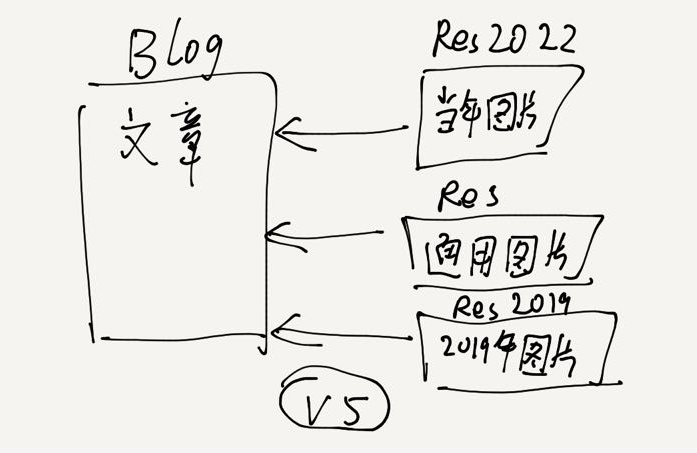 Blog
文章
Res2022
当年图片
Res
通用图片
Res 2019
2019年图片
V5